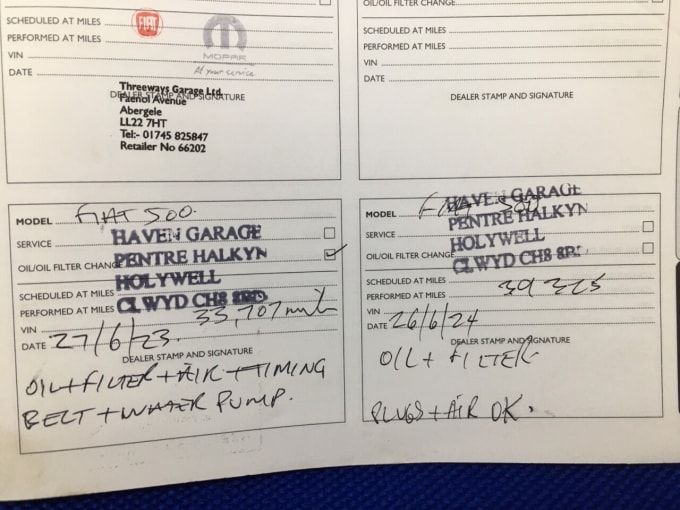 OIL/OIL FILTER CHANGE
SCHEDULED AT MILES
FIAT
PERFORMED AT MILES
VIN
MOPAR
DATE
At your service
DEALER STAMP AND SIGNATURE
Threeways Garage Ltd
Faenol Avenue
Abergele
LL22 7HT
Tel:- 01745 825847
Retailer No 66202
OIL/OIL FILTER CHANGE
SCHEDULED AT MILES
PERFORMED AT MILES
VIN
DATE
DEALER STAMP AND SIGNATURE
MODEL FIAT 500.
SERVICE
HAVEN GARAGE
OIL/OIL FILTER CHANGE
PENTRE HALKYN
HOLYWELL
SCHEDULED AT MILES
CLWYD CH8
PERFORMED AT MILES
33,707
VIN
DATE 27/6/23.
DEALER STAMP AND SIGNATURE
OIL+FILTER+AIR+TIMING
BELT+WATER PUMP.
MODEL
HAVEN GARAGE
SERVICE
PENTRE HALKYN
OIL/OIL FILTER CHANGE
HOLYWELL
CLWYD CH8
SCHEDULED AT MILES
PERFORMED AT MILES 39325
VIN
DATE 26/6/24
DEALER STAMP AND SIGNATURE
OIL+FILTER
PLUGS+AIR OK.